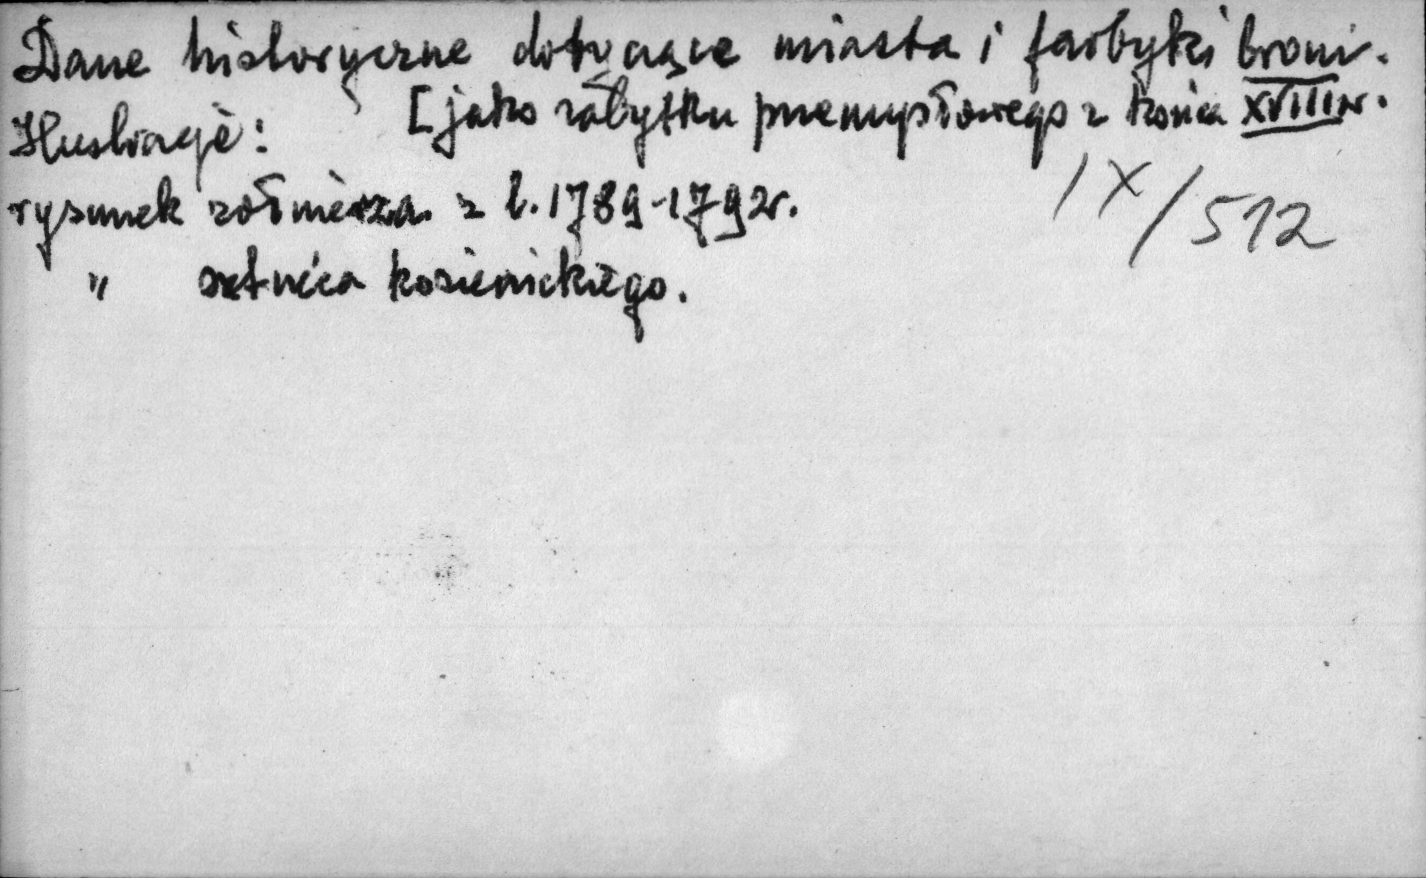 Dane historyczne dotyczące miasta i farbyki broni.
[jako zabytku przemysłowego z końca XVIII w.
Ilustracje:
rysunek żołnierza z l. 1789-1792r.
" sztućca kozienickiego.
IX/512